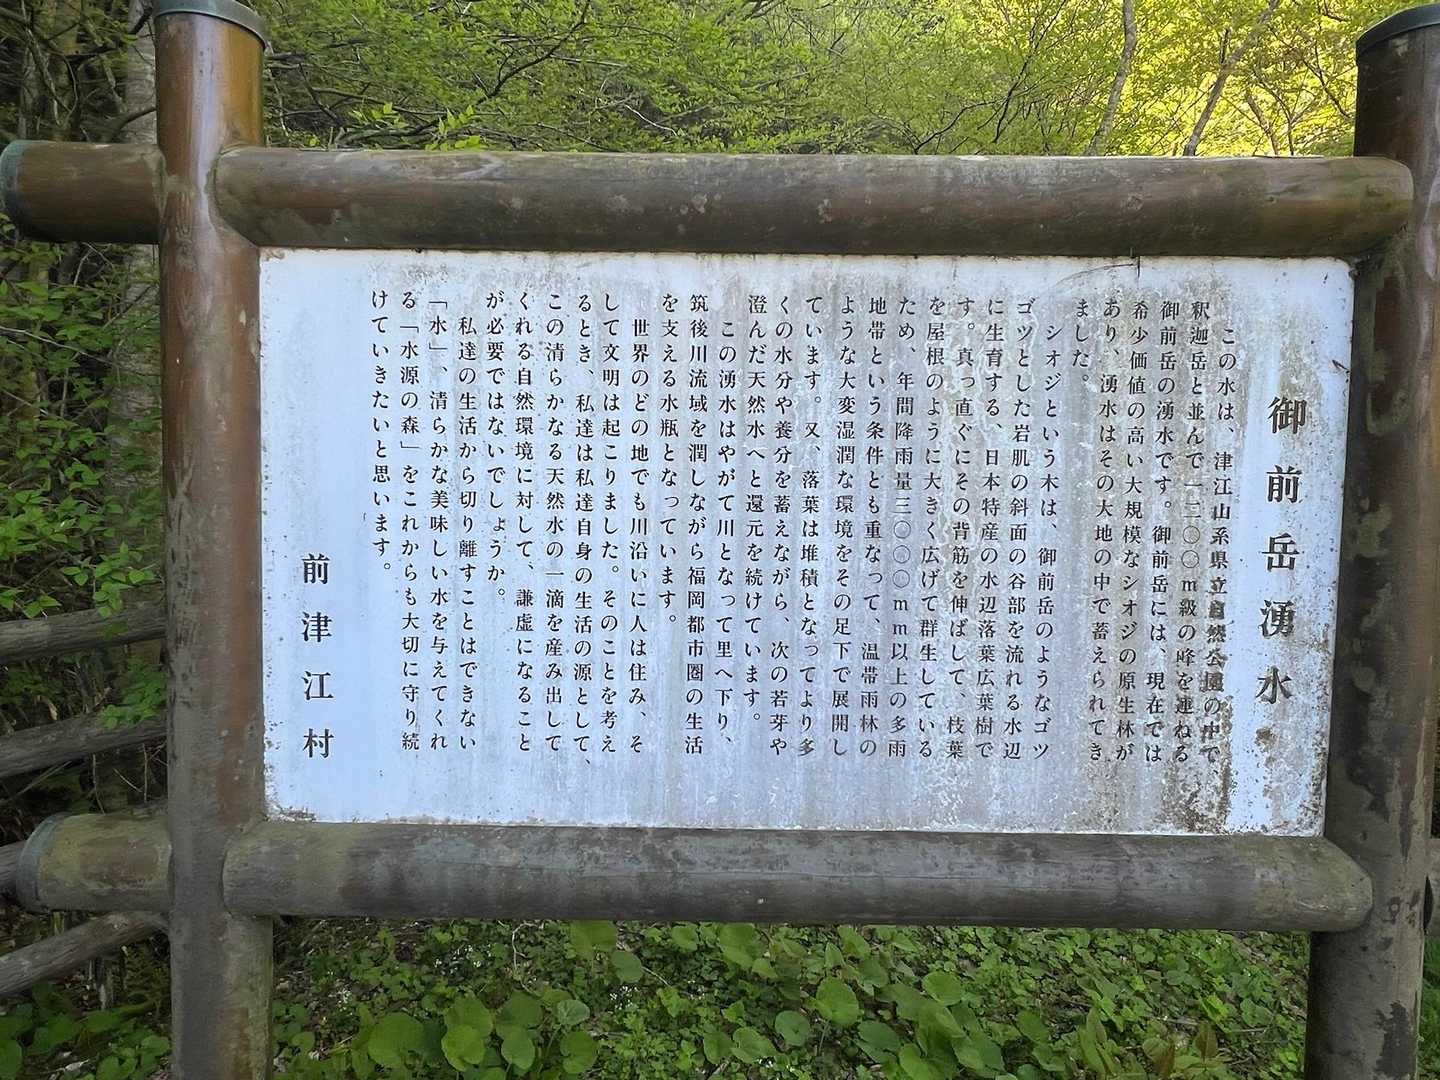 御前岳湧水
この水は、津江山系県立自然公園の中で、
釈迦岳と並んで一二〇〇m級の峰を連ねる
御前岳の湧水です。御前岳には、現在では
希少価値の高い大規模なシオジの原生林が
あり、湧水はその大地の中で蓄えられてき
ました。
シオジという木は、御前岳のようなゴツ
ゴツとした岩肌の斜面の谷部を流れる水辺
に生育する、日本特産の水辺落葉広葉樹で
す。真っ直ぐにその背筋を伸ばして、枝葉
を屋根のように大きく広げて群生している
ため、年間降雨量三〇〇〇mm以上の多雨
地帯という条件とも重なって、温帯雨林の
ような大変湿潤な環境をその足下で展開し
ています。又、落葉は堆積となってより多
くの水分や養分を蓄えながら、次の若芽や
澄んだ天然水へと還元を続けています。
この湧水はやがて川となって里へ下り、
筑後川流域を潤しながら福岡都市圏の生活
を支える水瓶となっています。
世界のどの地でも川沿いに人は住み、そ
して文明は起こりました。そのことを考え
るとき、私達は私達自身の生活の源として、
この清らかなる天然水の一滴を産み出して
くれる自然環境に対して、謙虚になること
が必要ではないでしょうか。
私達の生活から切り離すことはできない
「水」、清らかな美味しい水を与えてくれ
る「水源の森」をこれからも大切に守り続
けていきたいと思います。
前津江村